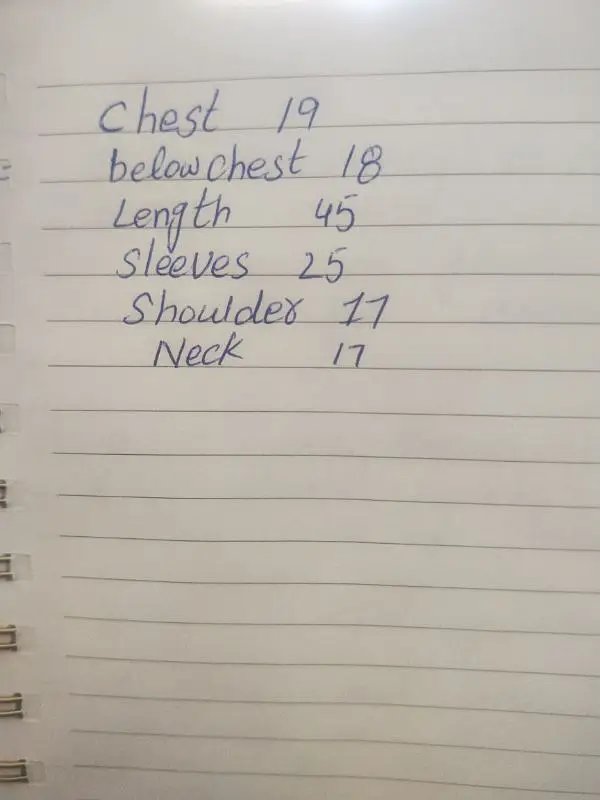 Chest 19
below chest 18
Length 45
Sleeves 25
Shoulder 17
Neck 17